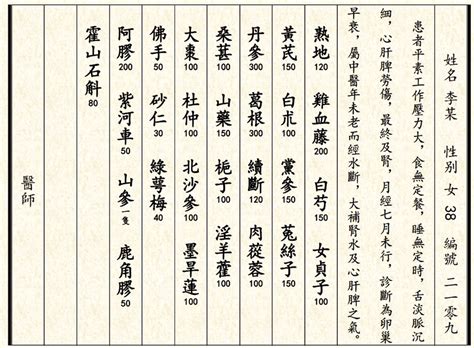 姓名 李某 性别 女 38 編號 二一零九
患者平素工作壓力大，食無定餐，睡無定時，舌淡脈沉
細，心肝脾勞傷，最終及腎，月經七月未行，診斷為卵巢
早衰，屬中醫年未老而經水斷，大補腎水及心肝脾之氣。
熟地120 雞血藤200 白芍150 女貞子100
黃芪150 白朮100 黨參150 菟絲子150
丹參300 葛根300 續斷120 肉蓯蓉100
桑葚100 山藥150 梔子100 淫羊藿100
大棗100 杜仲100 北沙參100 墨旱蓮100
佛手50 砂仁30 綠萼梅40
阿膠200 紫河車50 山參一隻 鹿角膠50
霍山石斛80
醫師